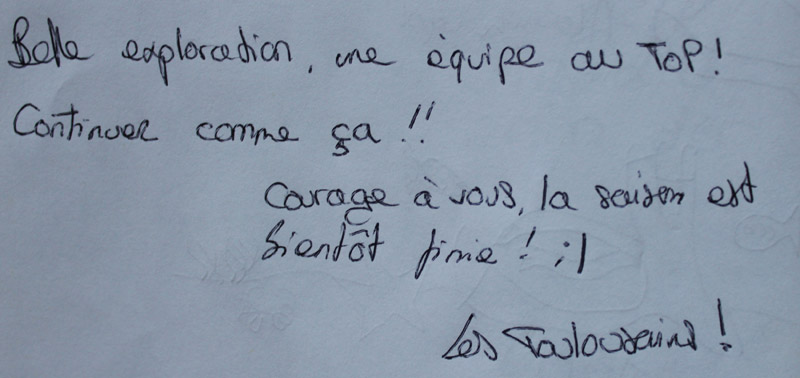 Belle exploration, une équipe au TOP!
Continuer comme ça !!
Courage à vous, la saison est
bientôt finie ! ;)
Les Toulousains !